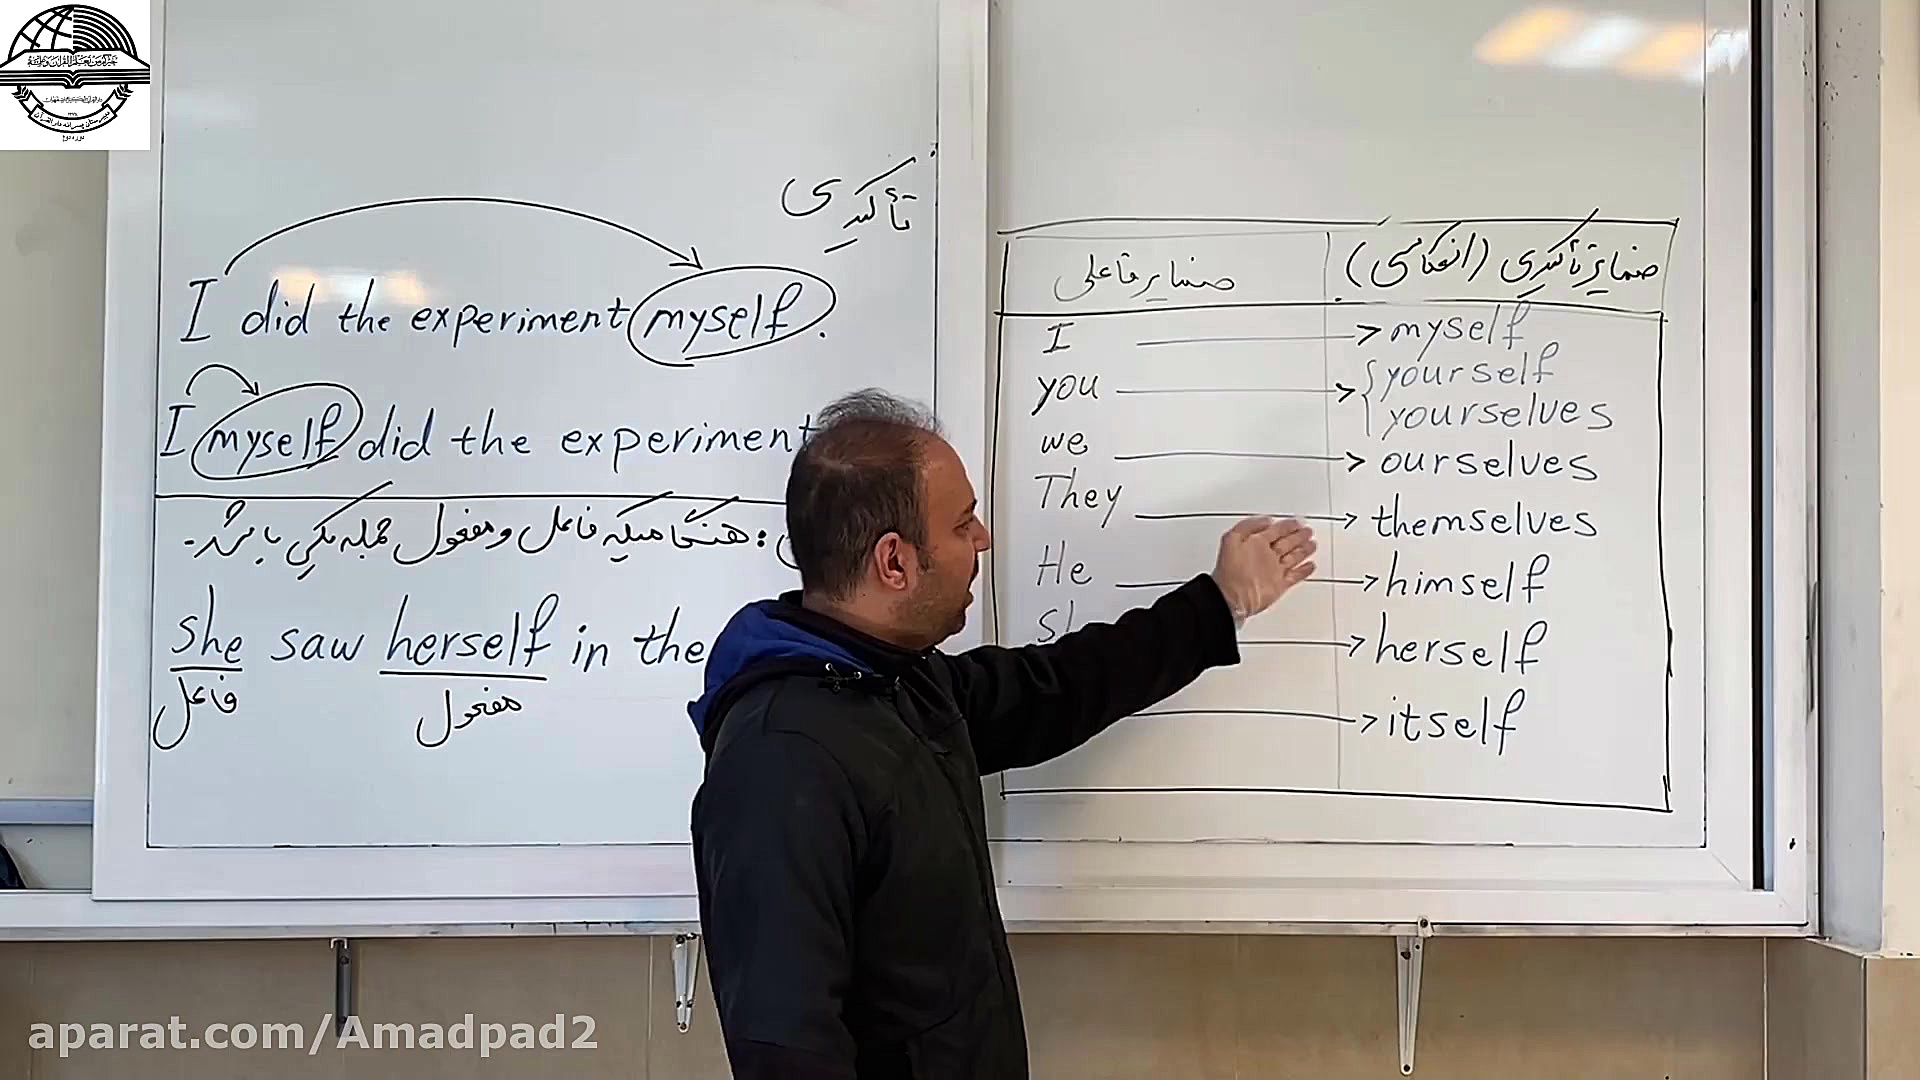 تأکیدی
I did the experiment myself.
I myself did the experiment
: هنگامیکه فاعل و مفعول جمله یکی باشد.
she saw herself in the
فاعل
مفعول
ضمایر فاعلی
ضمایر تأکیدی (انعکاسی)
I → myself
you → { yourself
yourselves
we → ourselves
They → themselves
He → himself
→ herself
→ itself
aparat.com/Amadpad2